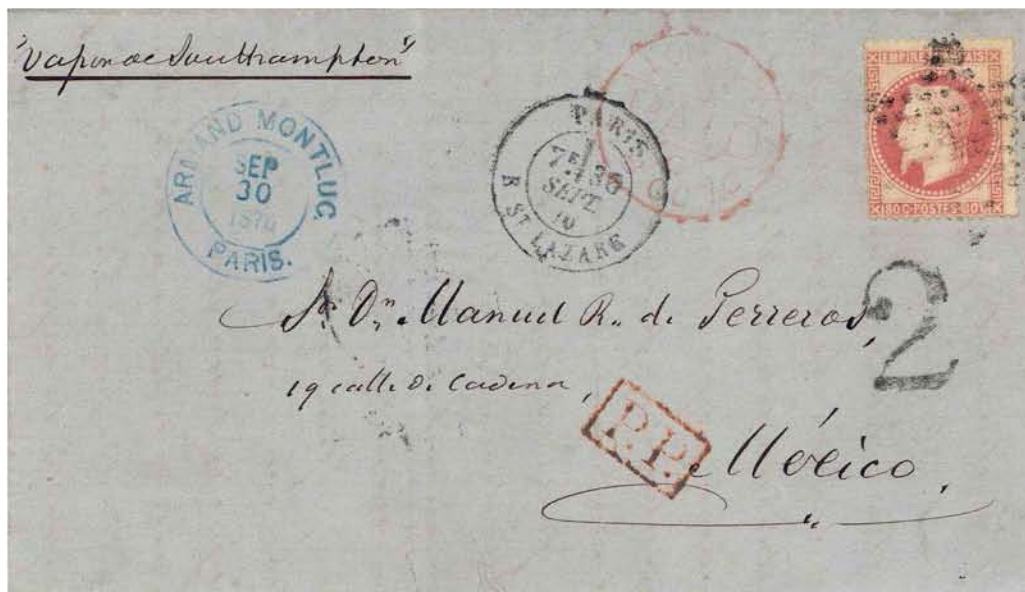 "Vapor de Southampton"
ARMAND MONTLUC
SEP
30
1870
PARIS.
PARIS
7E
30
SEPT.
R. ST LAZARE
PAID
EMPIRE FRANÇAIS
80 C·POSTES·80 C
2
Sr. Dn. Manuel R. de Terreros,
19 calle de Cadena,
P.P.
México.